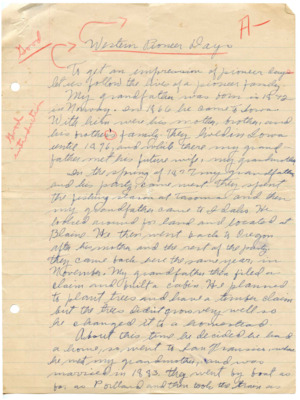 A-
Good
Western Pioneer Days
Good introduction
To get an impression of pioneer days
let us follow the lives of a pioneer family.
My grandfather was born in 1872
in Norway. In 18 he came to Iowa
With him were his mother, brother, and
his brother's family. They lived in Iowa
until 1876, and while there my grand-
father met his future wife, my grandmother
In the spring of 1877 my grandfather
and his party came west. They spent
the fishing season at Tacoma and then
my grandfather came to Idaho. He
looked around for land and located at
Blaine. He then went back to Oregon
after his mother and the rest of the party
they came back here the same year, in
November. My grandfather then filed a
claim and built a cabin. He planned
to plant trees and have a timber claim
but the trees didn't grow very well so
he changed it to a homestead.
About this time he decided he had
a home, so went to San Francisco where
he met my grandmother, and was
married in 1882. They went by boat as
far as Portland and then took the train as